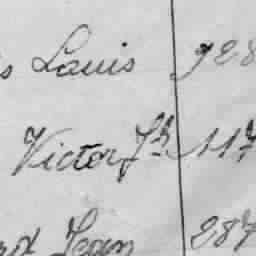 s Louis 928
Victor Jh 117
Jean 287